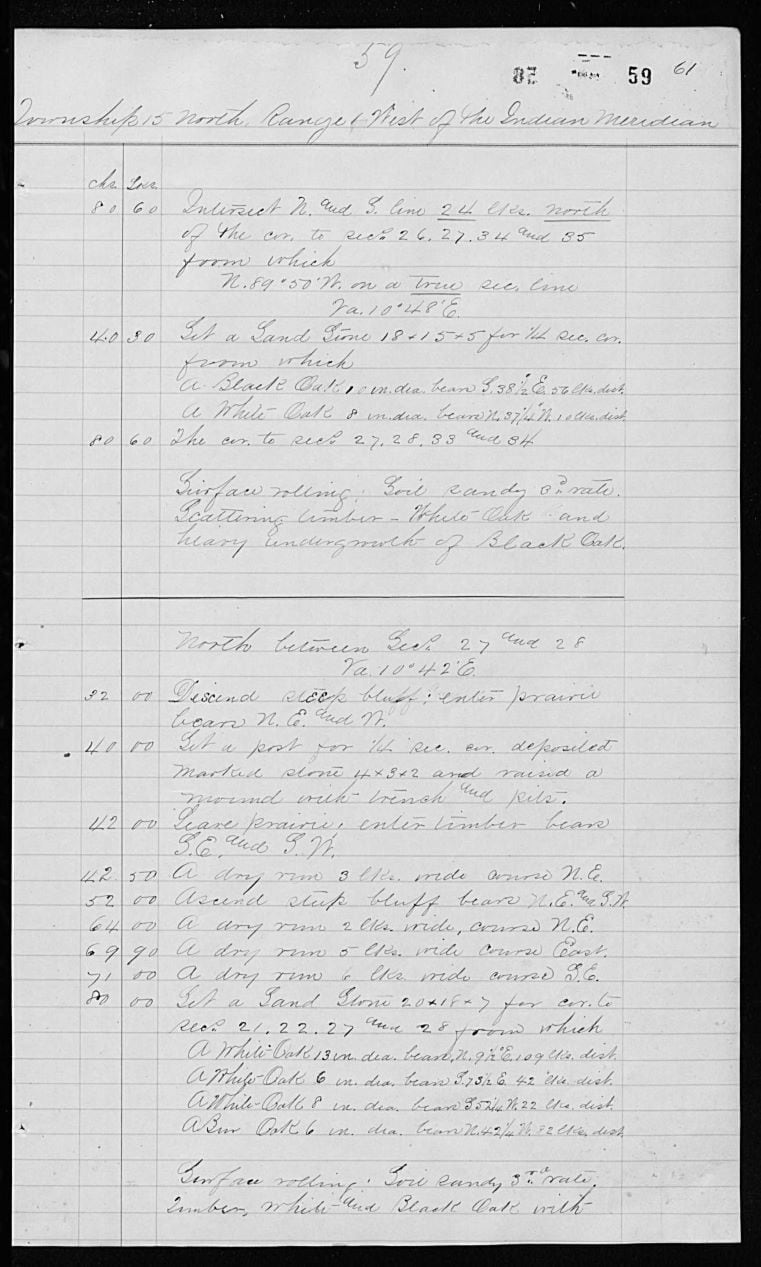 59.
82 59 61
Township 15 North, Range 4 West of the Indian Meridian
chs. Lks.
80 60 Intersect N. and S. line 24 lks. north
of the cor. to secs. 26, 27, 34 and 35
from which
N. 89° 50' W. on a true sec. line
Va. 10° 48' E.
40 30 Set a Sand Stone 18 x 15 x 5 for 1/4 sec. cor.
from which
A Black Oak 10 in. dia. bears S. 38 1/2° E. 56 lks. dist.
A White Oak 8 in. dia. bears N. 37 1/4° W. 10 lks. dist.
80 60 The cor. to secs. 27, 28, 33 and 34
Surface rolling; Soil sandy 3rd rate.
Scattering timber - White Oak and
heavy undergrowth of Black Oak.
North between Secs. 27 and 28
Va. 10° 42' E.
32 00 Descend steep bluff; enter prairie
bears N. E. and W.
40 00 Set a post for 1/4 sec. cor. deposited
marked stone 4 x 3 x 2 and raised a
mound with trench and pits.
42 00 Leave prairie; enter timber bears
S. E. and S. W.
42 50 A dry run 3 lks. wide course N. E.
52 00 Ascend steep bluff bears N. E. and S. W.
64 00 A dry run 2 lks. wide, course N. E.
69 90 A dry run 5 lks. wide course East.
71 00 A dry run 6 lks. wide course S. E.
80 00 Set a Sand Stone 20 x 18 x 7 for cor. to
secs. 21, 22, 27 and 28 from which
A White Oak 13 in. dia. bears N. 9 1/2° E. 109 lks. dist.
A White Oak 6 in. dia. bears S. 73 1/2 E. 42 lks. dist.
A White Oak 8 in. dia. bears W. 22 lks. dist.
A Bur Oak 6 in. dia. bears N. 42 1/4 W. 82 lks. dist.
Surface rolling; Soil sandy 3rd rate.
Timber, White and Black Oak with